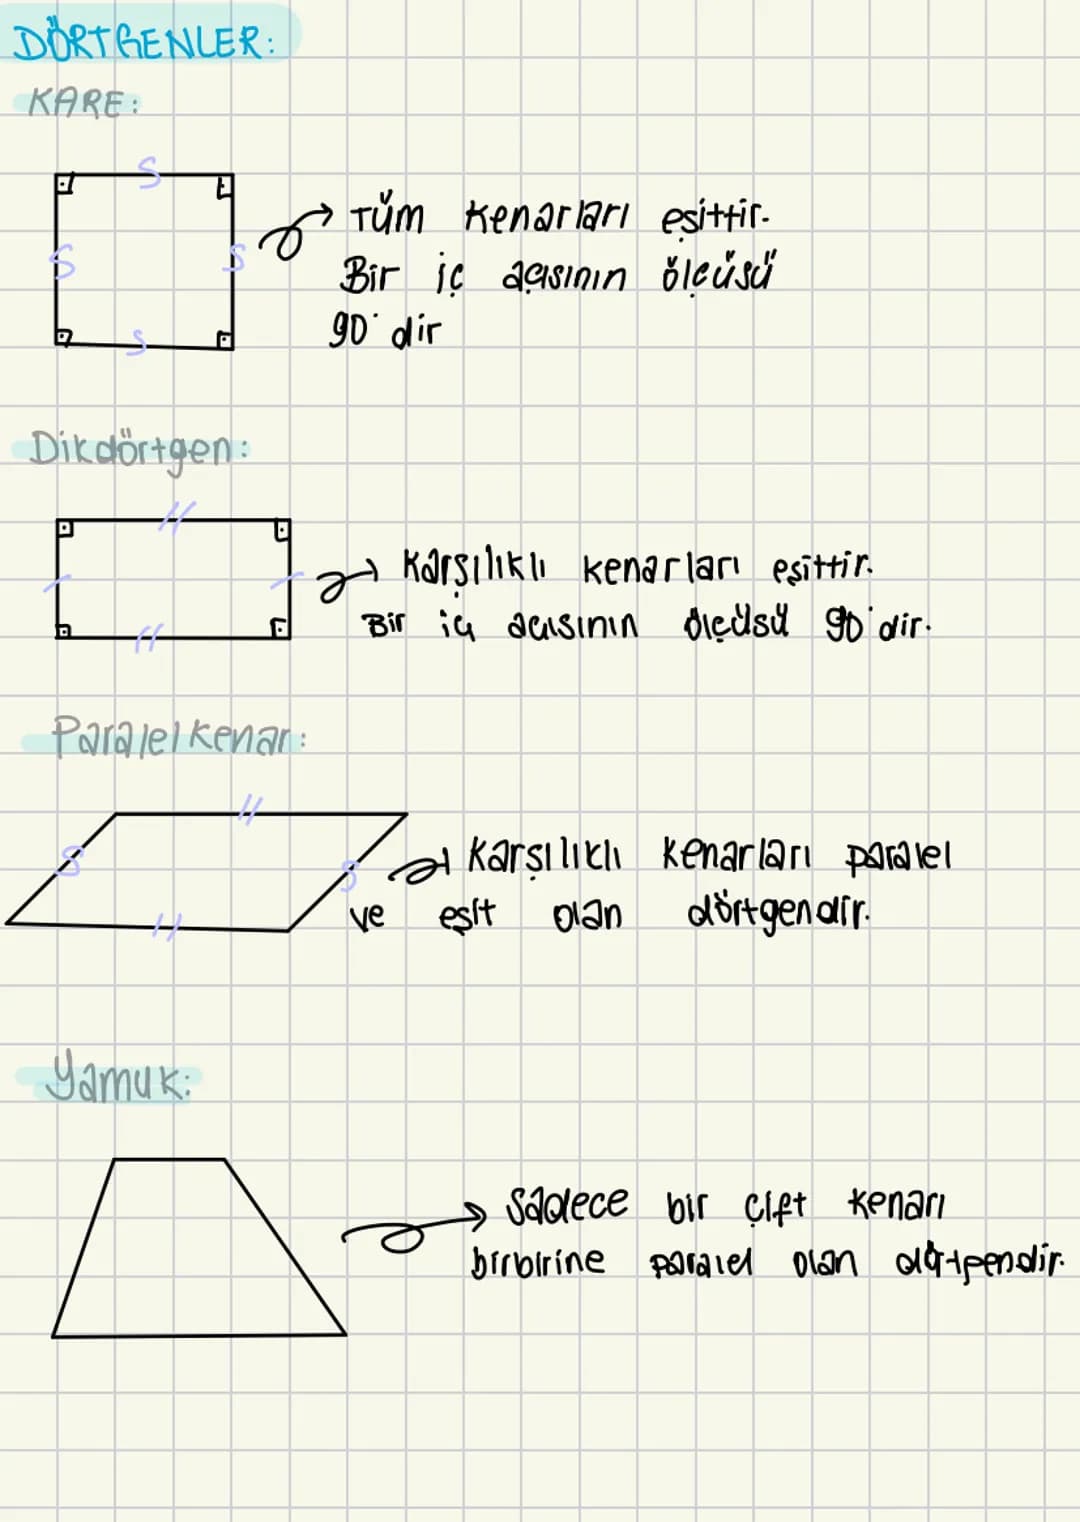 DÖRTGENLER:
KARE:
S
S
S
S
Tüm kenarları eşittir.
Bir iç açısının ölçüsü
90° dir
Dikdörtgen:
Karşılıklı kenarları eşittir.
Bir iç açısının ölçüsü 90°dir.
Paralelkenar:
S
S
Karşılıklı kenarları paralel
ve eşit olan dörtgendir.
Yamuk:
Sadece bir çift kenarı
birbirine paralel olan dörtgendir.